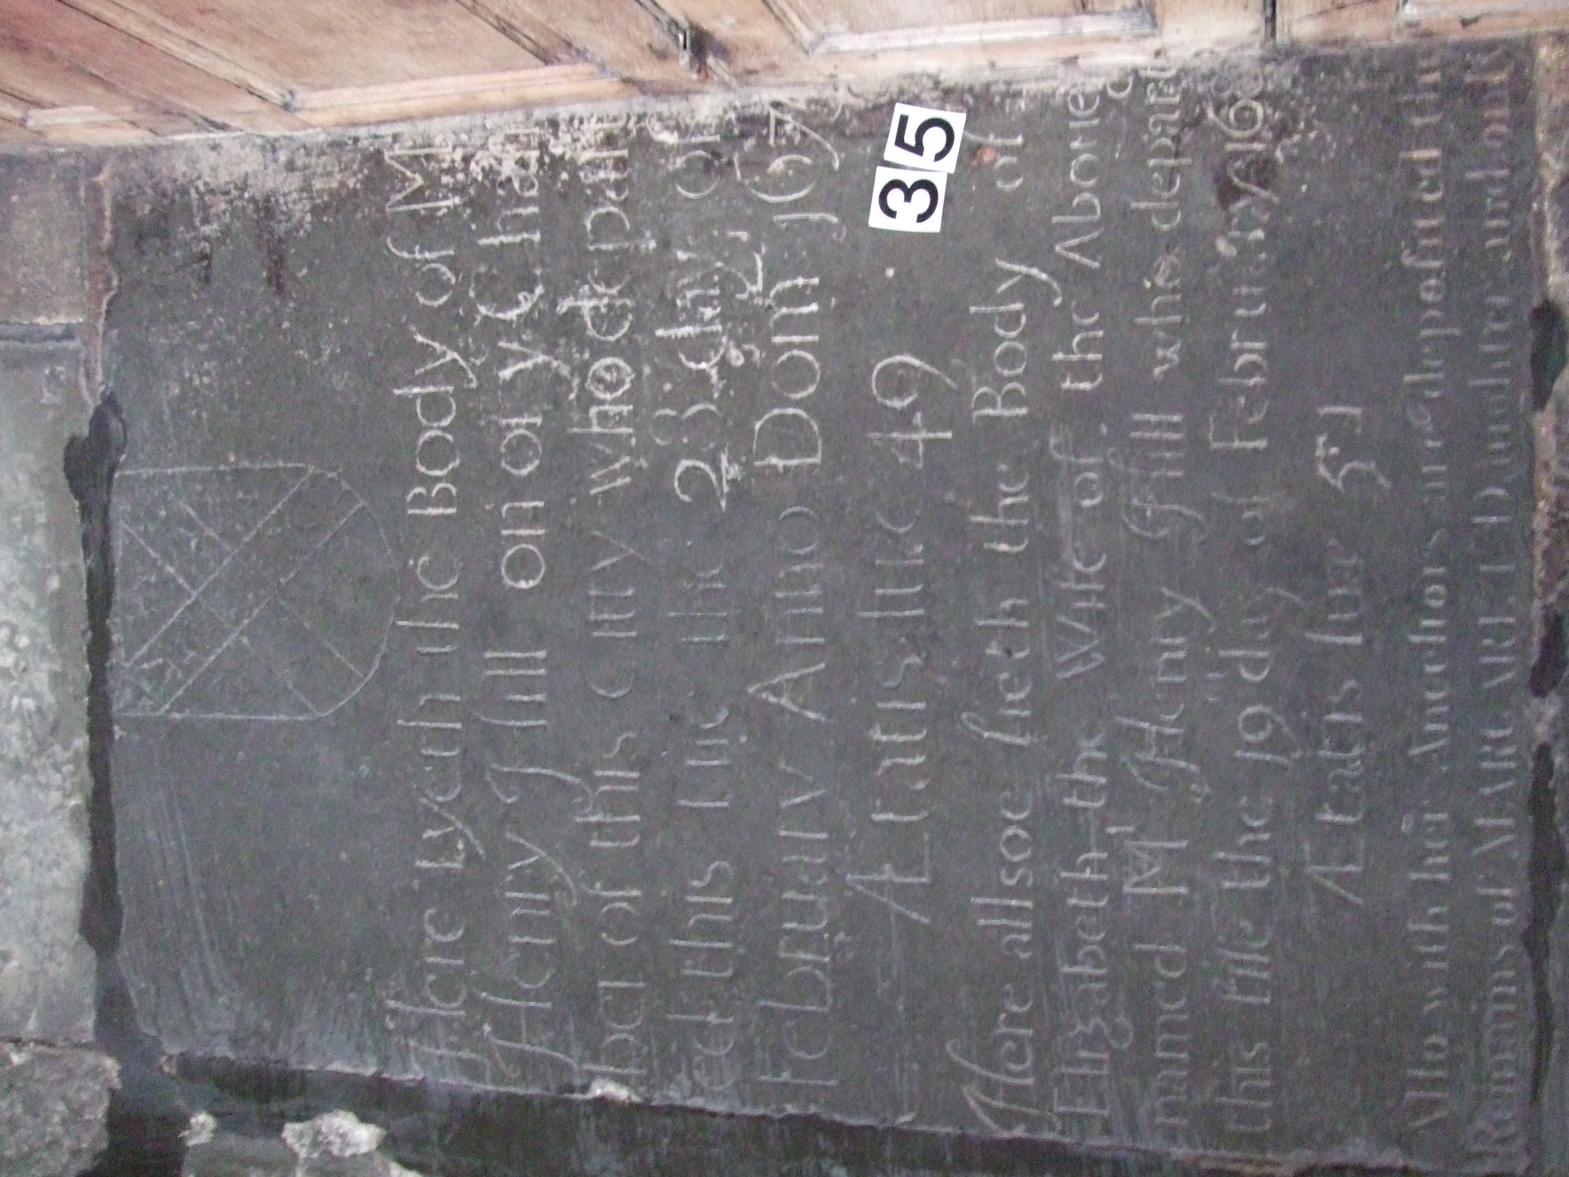 Hare lyeth the Body of M
Henry Hill on of yͤ Cham
ba of this citty who depart
ed this life the 23 day Of
February Anno Dom 167
Ætatis suæ 49
35
Here allsoe lieth the Body of
Elizabeth the Wife of the Aboue
named Mʳ Henry Hill who depart
this life the 19 day of February 16
Ætatis suæ 51
Also with her Ancestors are deposited the
Remains of Daughter and only